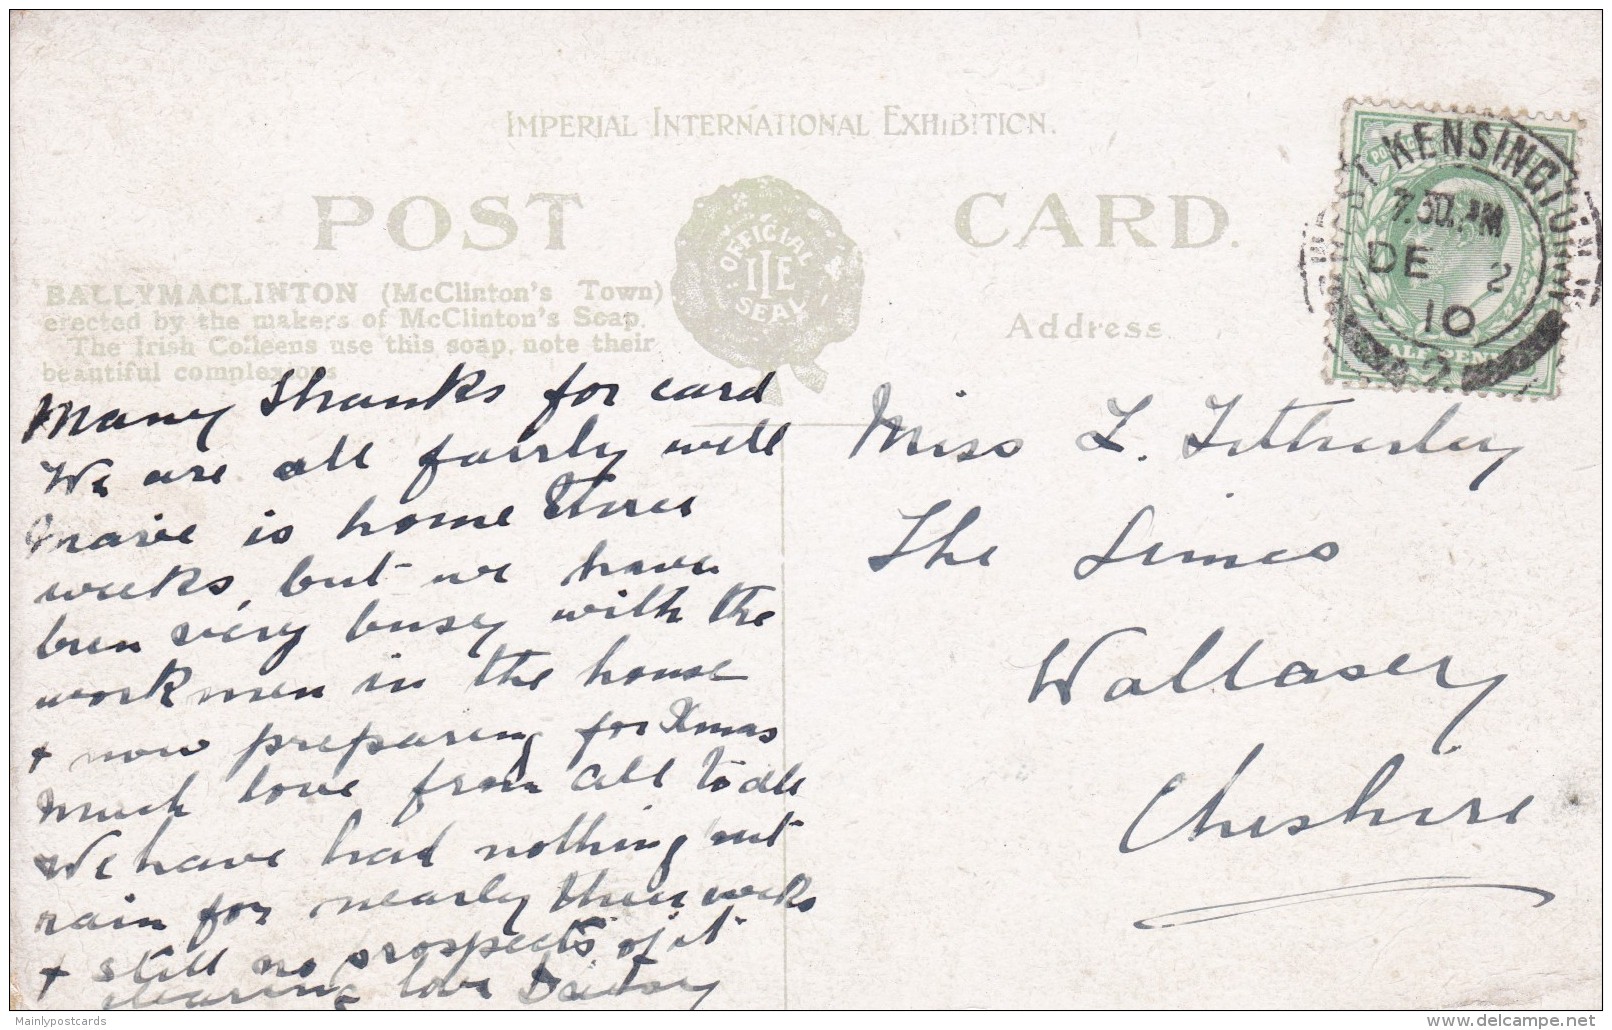 IMPERIAL INTERNATIONAL EXHIBITION.
POST CARD.
OFFICIAL
IIE
SEAL
BALLYMACLINTON (McClinton's Town)
erected by the makers of McClinton's Soap.
The Irish Colleens use this soap, note their
beautiful complexions
Address
WEST KENSINGTON
7.30 AM
DE 2
10
HALFPENNY
Many thanks for card
We are all fairly well
Marie is home three
weeks, but we have
been very busy with the
workmen in the house
+ now preparing for Xmas
Much love from all to all
We have had nothing but
rain for nearly three weeks
+ still no prospects of it
clearing love Daisy
Miss L. Titherley
The Limes
Wallasey
Cheshire
Mainlypostcards
delcampe.net